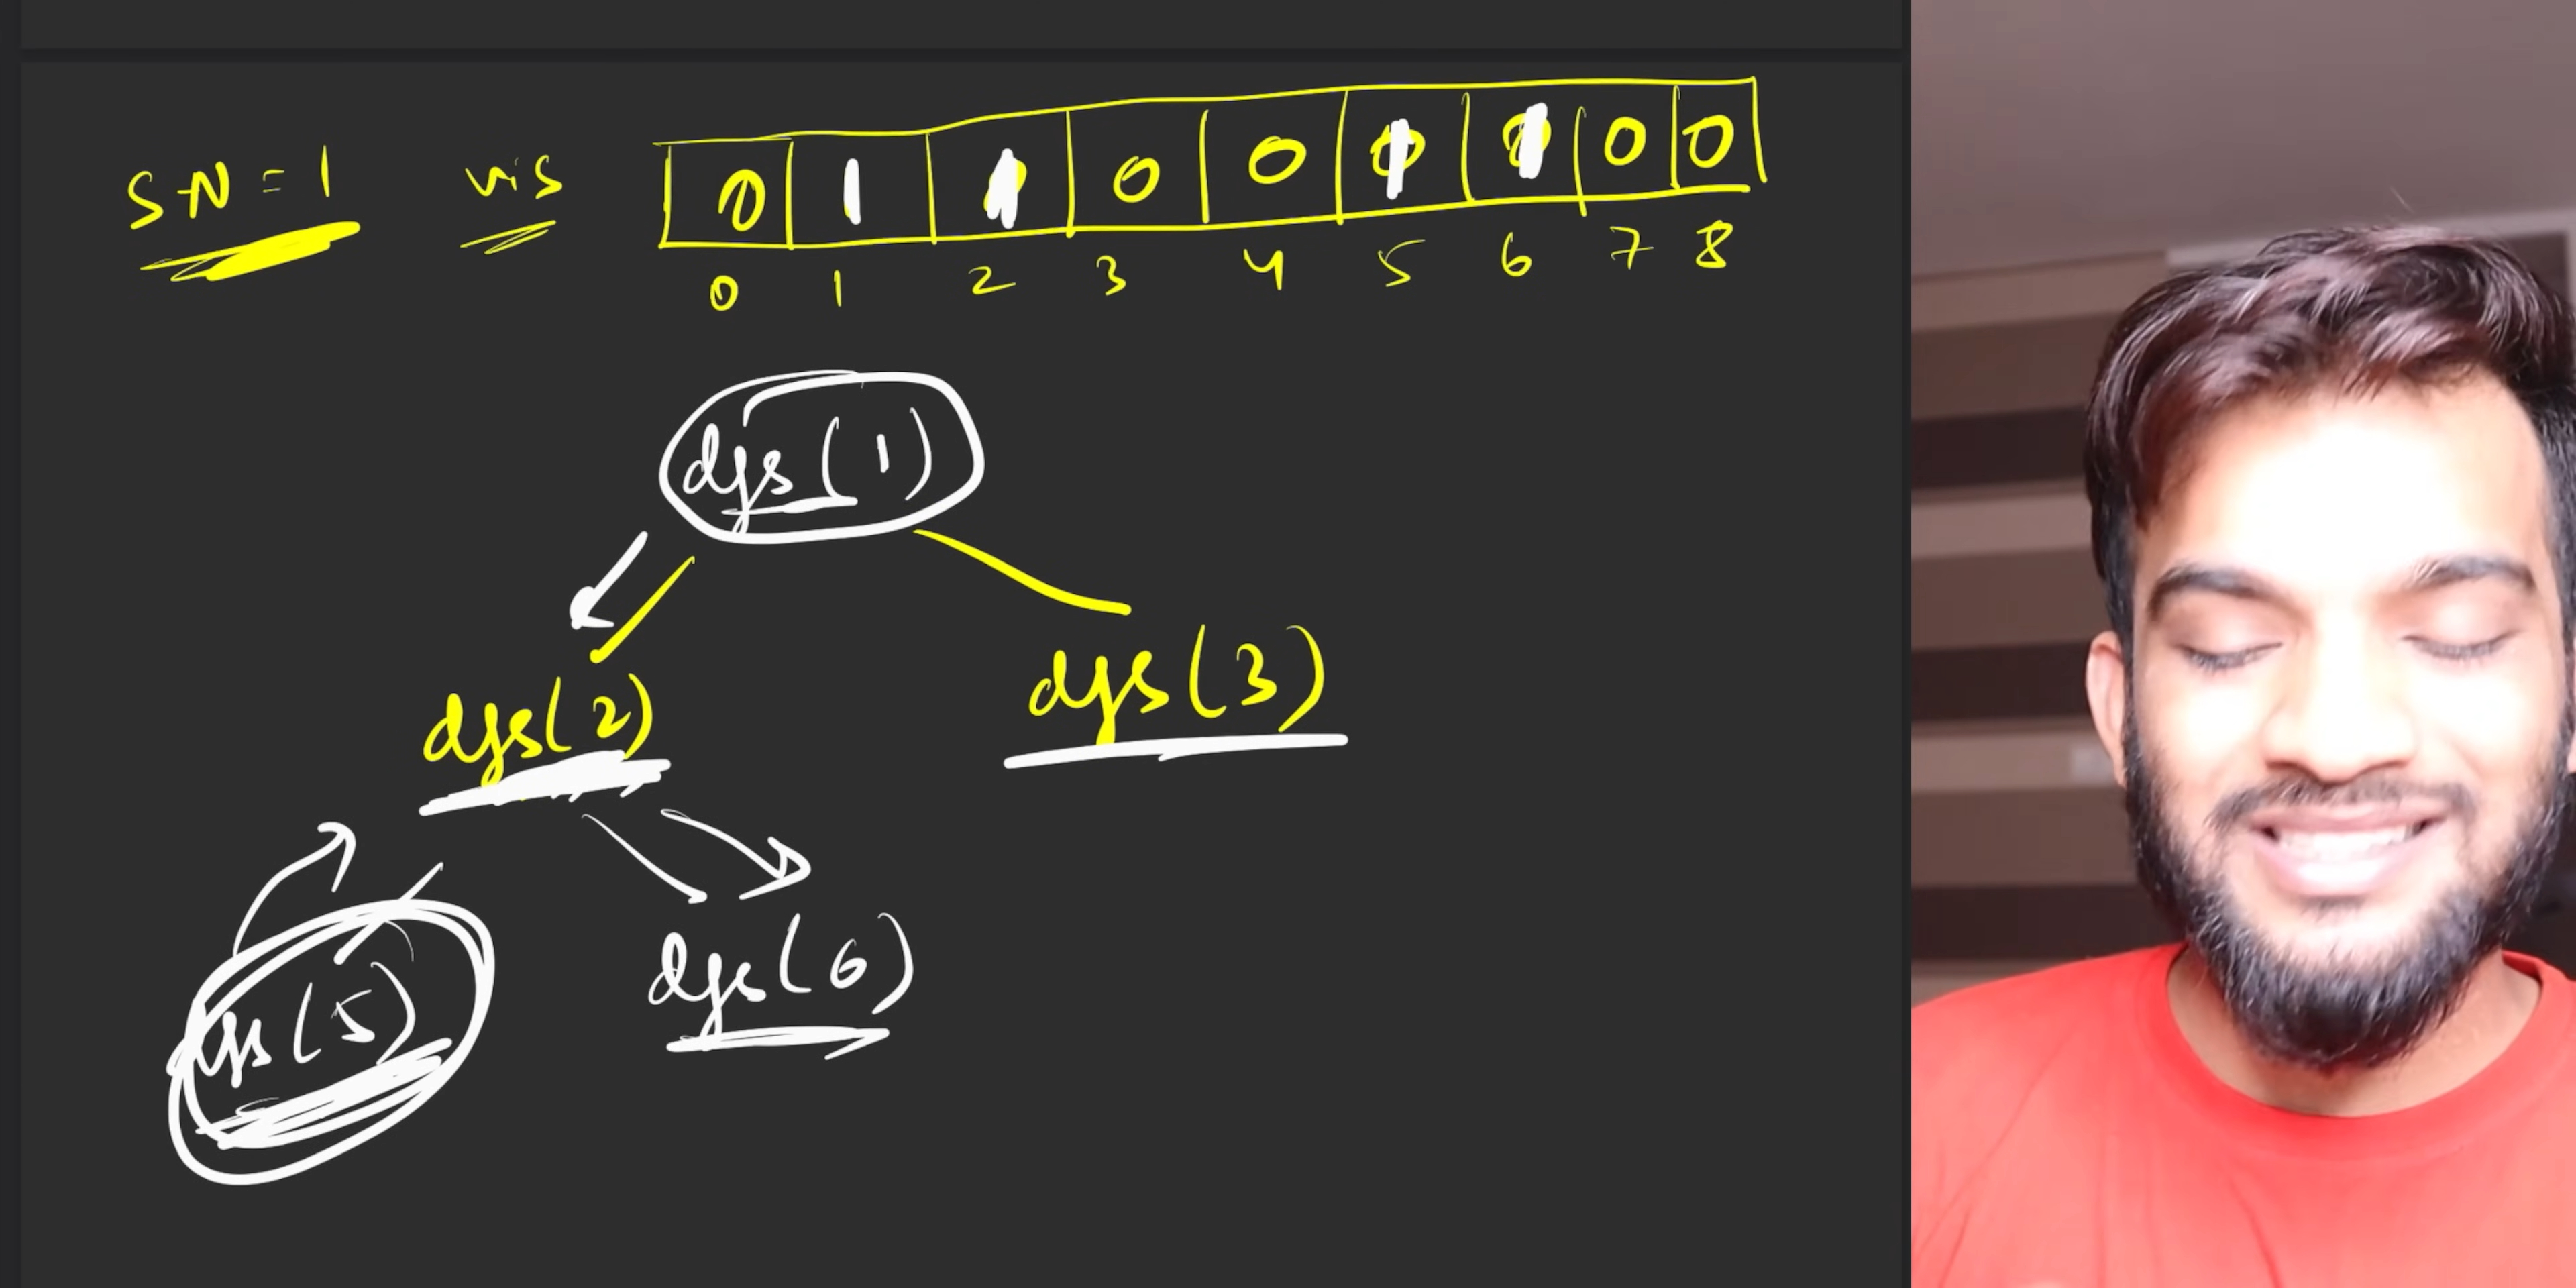 SN = 1 vis 0 1 1 0 0 1 1 0 0
0 1 2 3 4 5 6 7 8
dfs(1)
dfs(2) dfs(3)
dfs(5) dfs(6)